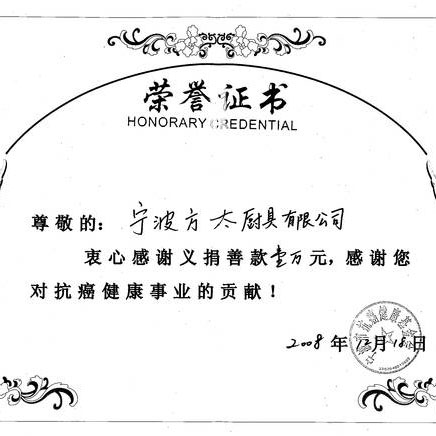 荣誉证书
HONORARY CREDENTIAL
尊敬的：宁波方太厨具有限公司
衷心感谢义捐善款壹万元，感谢您
对抗癌健康事业的贡献！
2008年12月18日